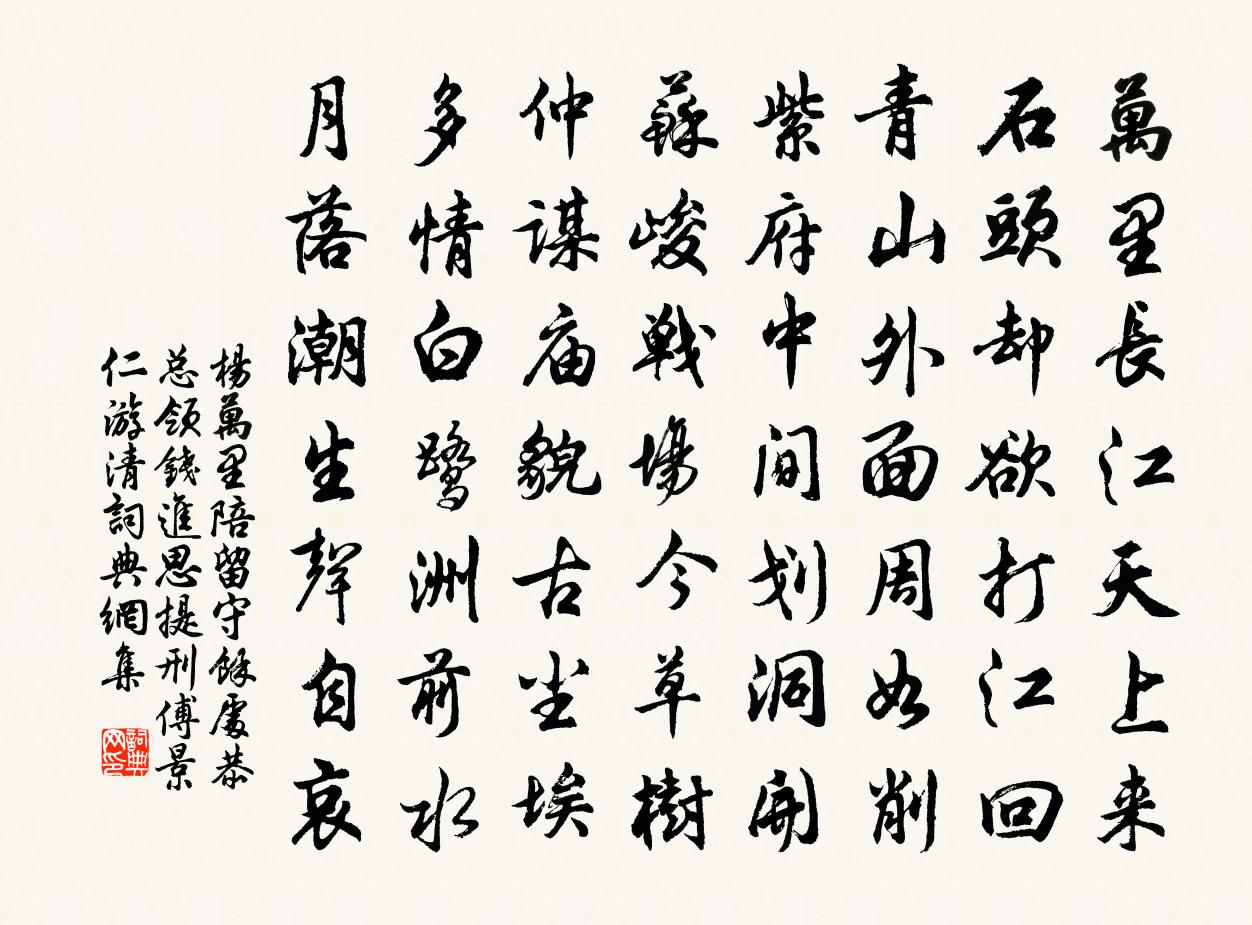 萬里長江天上来
石頭却欲打江回
青山外面周如削
紫府中间划洞開
蘇峻戰場今草樹
仲謀庙貌古尘埃
多情白鹭洲前水
月落潮生聲自哀
楊萬里陪留守餘處恭
总領錢進思提刑傅景
仁游清詞典網集
詞典网印